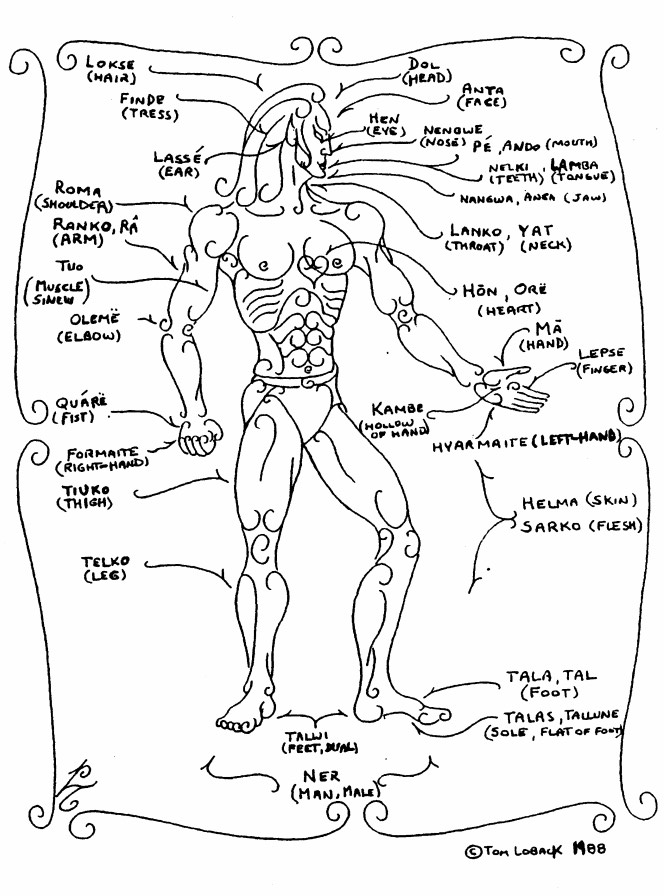 LOKSE
(HAIR)
DOL
(HEAD)
FINDE
(TRESS)
ANTA
(FACE)
HEN
(EYE)
NENGWE
(NOSE)
PÉ, ANDO (MOUTH)
LASSÉ
(EAR)
NELKI
(TEETH)
LAMBA
(TONGUE)
NANGWA, ANCA (JAW)
ROMA
(SHOULDER)
RANKO, RÂ
(ARM)
LANKO, YAT
(THROAT) (NECK)
TUO
(MUSCLE
SINEW)
HŌN, ORË
(HEART)
OLEMË
(ELBOW)
MĀ
(HAND)
LEPSE
(FINGER)
QUÁRË
(FIST)
KAMBE
(HOLLOW
OF HAND)
HYARMAITE (LEFT-HAND)
FORMAITE
(RIGHT-HAND)
TIUKO
(THIGH)
HELMA (SKIN)
SARKO (FLESH)
TELKO
(LEG)
TALA, TAL
(FOOT)
TALAS, TALLUNE
(SOLE, FLAT OF FOOT)
TALWI
(FEET, DUAL)
NER
(MAN, MALE)
© TOM LOBACK 1988